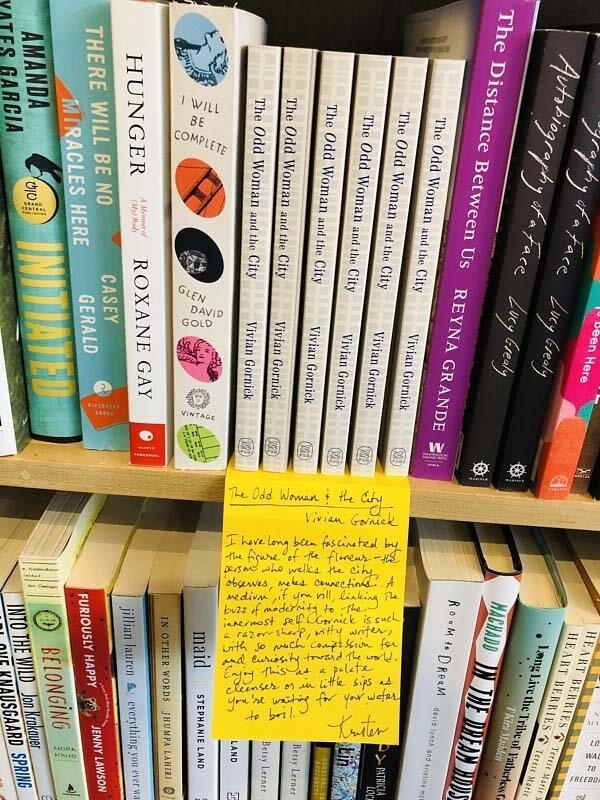 AMANDA
YATES GARCIA
INITIATED
GRAND CENTRAL PUBLISHING
THERE WILL BE NO
MIRACLES HERE
CASEY
GERALD
RIVERHEAD BOOKS
HUNGER
A Memoir of (My) Body
ROXANE GAY
HARPER PERENNIAL
I WILL
BE
COMPLETE
GLEN
DAVID
GOLD
VINTAGE
The Odd Woman and the City Vivian Gornick
The Odd Woman and the City Vivian Gornick
The Odd Woman and the City Vivian Gornick
The Odd Woman and the City Vivian Gornick
The Odd Woman and the City Vivian Gornick
The Odd Woman and the City Vivian Gornick
The Distance Between Us REYNA GRANDE
WASHINGTON SQUARE PRESS
Autobiography of a Face Lucy Grealy
MARINER
Autobiography of a Face Lucy Grealy
MARINER
Been Here
The Odd Woman & the City
Vivian Gornick
I have long been fascinated by
the figure of the flaneur—the
person who walks the city,
observes, makes connections. A
medium, if you will, linking the
buzz of modernity to the
innermost self. Gornick is such
a razor-sharp, witty writer,
with so much compassion for
and curiosity toward the world.
Enjoy this as a palate
cleanser or in little sips as
you're waiting for your water
to boil.
Kristen
KNAUSGAARD SPRING
INTO THE WILD Jon Krakauer
BELONGING
NORA KRUG
FURIOUSLY HAPPY
JENNY LAWSON
jillian lauren everything you ever
IN OTHER WORDS JHUMPA LAHIRI
maid
STEPHANIE LAND
LAND
Betsy Lerner
Betsy Lerner
PATRICIA
ROOM to DREAM david lynch and kristine
MACHADO IN THE DREAM HOUSE
Long Live the Tribe of Fatherless
T Kira Madden
HEART BERRIES
Terese
HEART BERRIES
Terese
WALK
TO
FREEDOM